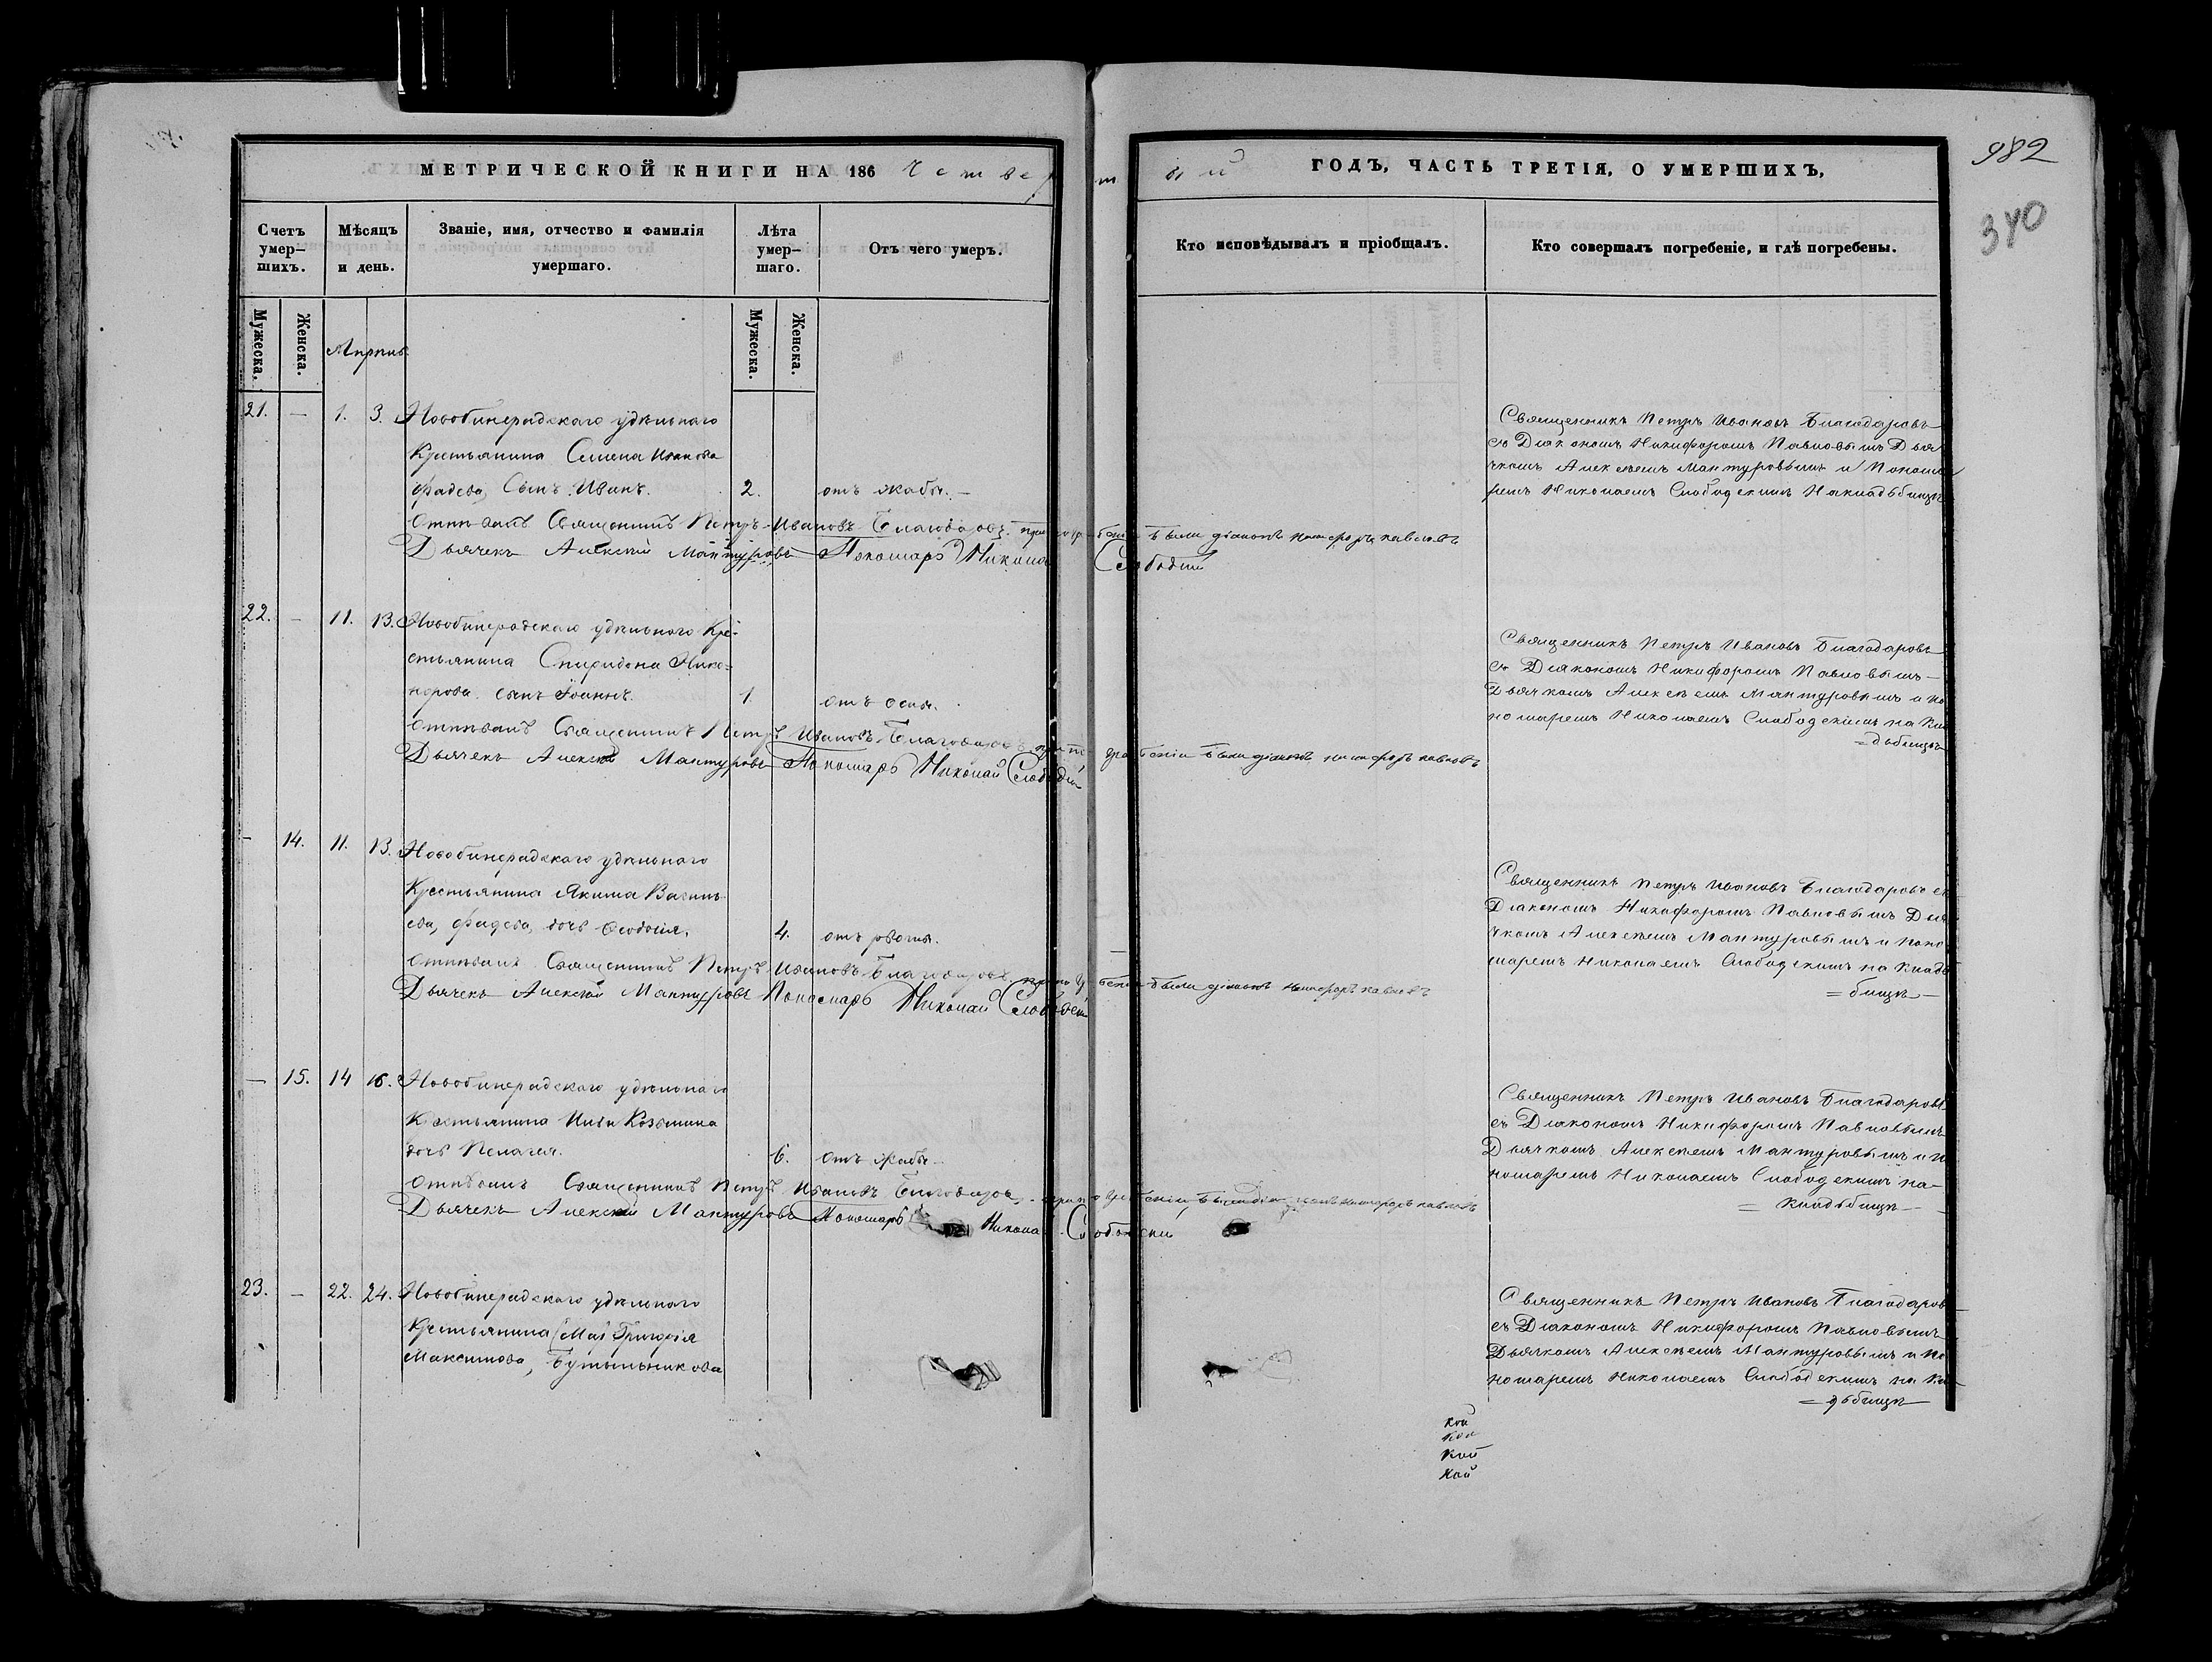 982
340
МЕТРИЧЕСКОЙ КНИГИ НА 186 четвертый ГОДЪ, ЧАСТЬ ТРЕТІЯ, О УМЕРШИХЪ,
Счетъ умер-шихъ.
Мѣсяцъ и день.
Званіе, имя, отчество и фамилія умершаго.
Лѣта умер-шаго.
Отъ чего умеръ.
Кто исповѣдывалъ и пріобщалъ.
Кто совершалъ погребеніе, и гдѣ погребены.
Мужеска.
Женска.
Мужеска.
Женска.
21. — 1. 3. Новобинерадскаго удѣльнаго
Крестьянина Семена Иванова
Фадева, Сынъ Иванъ. 2. отъ жабы. —
Священникъ Петръ Ивановъ Благодаровъ
съ Діакономъ Никифоромъ Павловымъ Дья
чкомъ Алексѣемъ Мантуровымъ и Понома
ремъ Николаемъ Слободскимъ На кладбищѣ
Отпѣвалъ Священникъ Петръ Ивановъ Благодаровъ. при погребеніи были діаконъ никифоръ павловъ
Дьячекъ Алексѣй Мантуровъ Пономарь Николай Слободскій
22. — 11. 13. Новобинерадскаго удѣльнаго Кре-
стьянина Спиридона Ника-
норова сынъ Іоаннъ. 1. отъ оспы.
Священникъ Петръ Ивановъ Благодаровъ
съ Діакономъ Никифоромъ Павловымъ —
Дьячкомъ Алексѣемъ Мантуровымъ и по
номаремъ Николаемъ Слободскимъ на Кла
= дбищѣ
Отпѣвалъ Священникъ Петръ Ивановъ Благодаровъ при погребеніи были діаконъ никифоръ павловъ
Дьячекъ Алексѣй Мантуровъ Пономарь Николай Слободскій
— 14. 11. 13. Новобинерадскаго удѣльнаго
Крестьянина Якима Василь
ева, Фадева, дочь Ѳеодосія. 4. отъ рвоты.
Священникъ Петръ Ивановъ Благодаровъ съ
Діакономъ Никифоромъ Павловымъ Дья
чкомъ Алексѣемъ Мантуровымъ и поно
маремъ Николаемъ Слободскимъ на кладб
= бищѣ —
Отпѣвалъ Священникъ Петръ Ивановъ Благодаровъ при погребеніи были діаконъ никифоръ павловъ
Дьячекъ Алексѣй Мантуровъ Пономарь Николай Слободскій
— 15. 14 16. Новобинерадскаго удѣльнаго
Крестьянина Ильи Козьмина
дочь Пелагея. 6. отъ жабы —
Священникъ Петръ Ивановъ Благодаровъ
съ Діакономъ Никифоромъ Павловымъ
Дьячкомъ Алексѣемъ Мантуровымъ и по
номаремъ Николаемъ Слободскимъ на —
= Кладбищѣ —
Отпѣвалъ Священникъ Петръ Ивановъ Благодаровъ при погребеніи были діаконъ никифоръ павловъ
Дьячекъ Алексѣй Мантуровъ Пономарь Николай Слободскій
23. — 22. 24. Новобинерадскаго удѣльнаго
Крестьянина Григорія
Максимова, Бутыльникова
Священникъ Петръ Ивановъ Благодаровъ
съ Діакономъ Никифоромъ Павловымъ
Дьячкомъ Алексѣемъ Мантуровымъ и по
номаремъ Николаемъ Слободскимъ на Кла
= дбищѣ
кой
кой
кой
кой